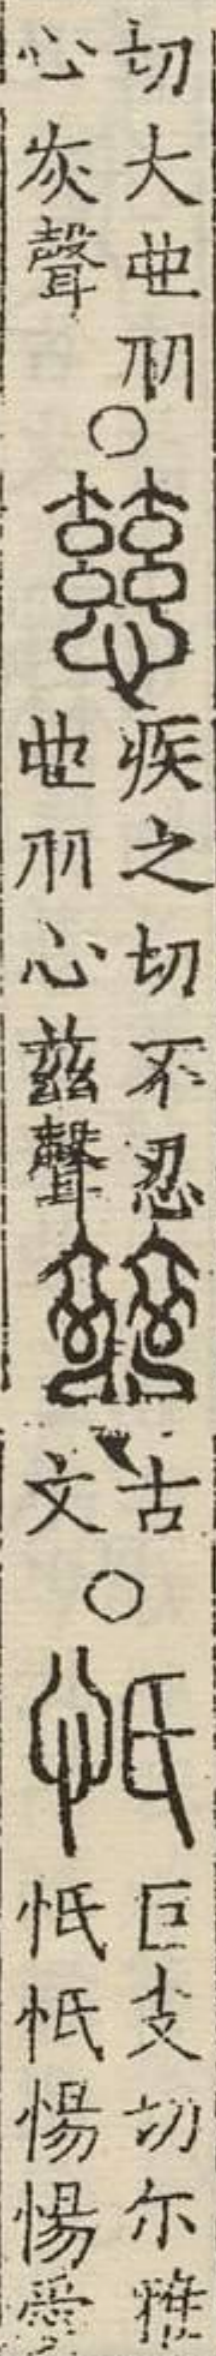 切大也从
心灰聲
○
慈
疾之切不忍
也从心茲聲
古
文
○
忯
巨支切尔雅
忯忯惕惕愛